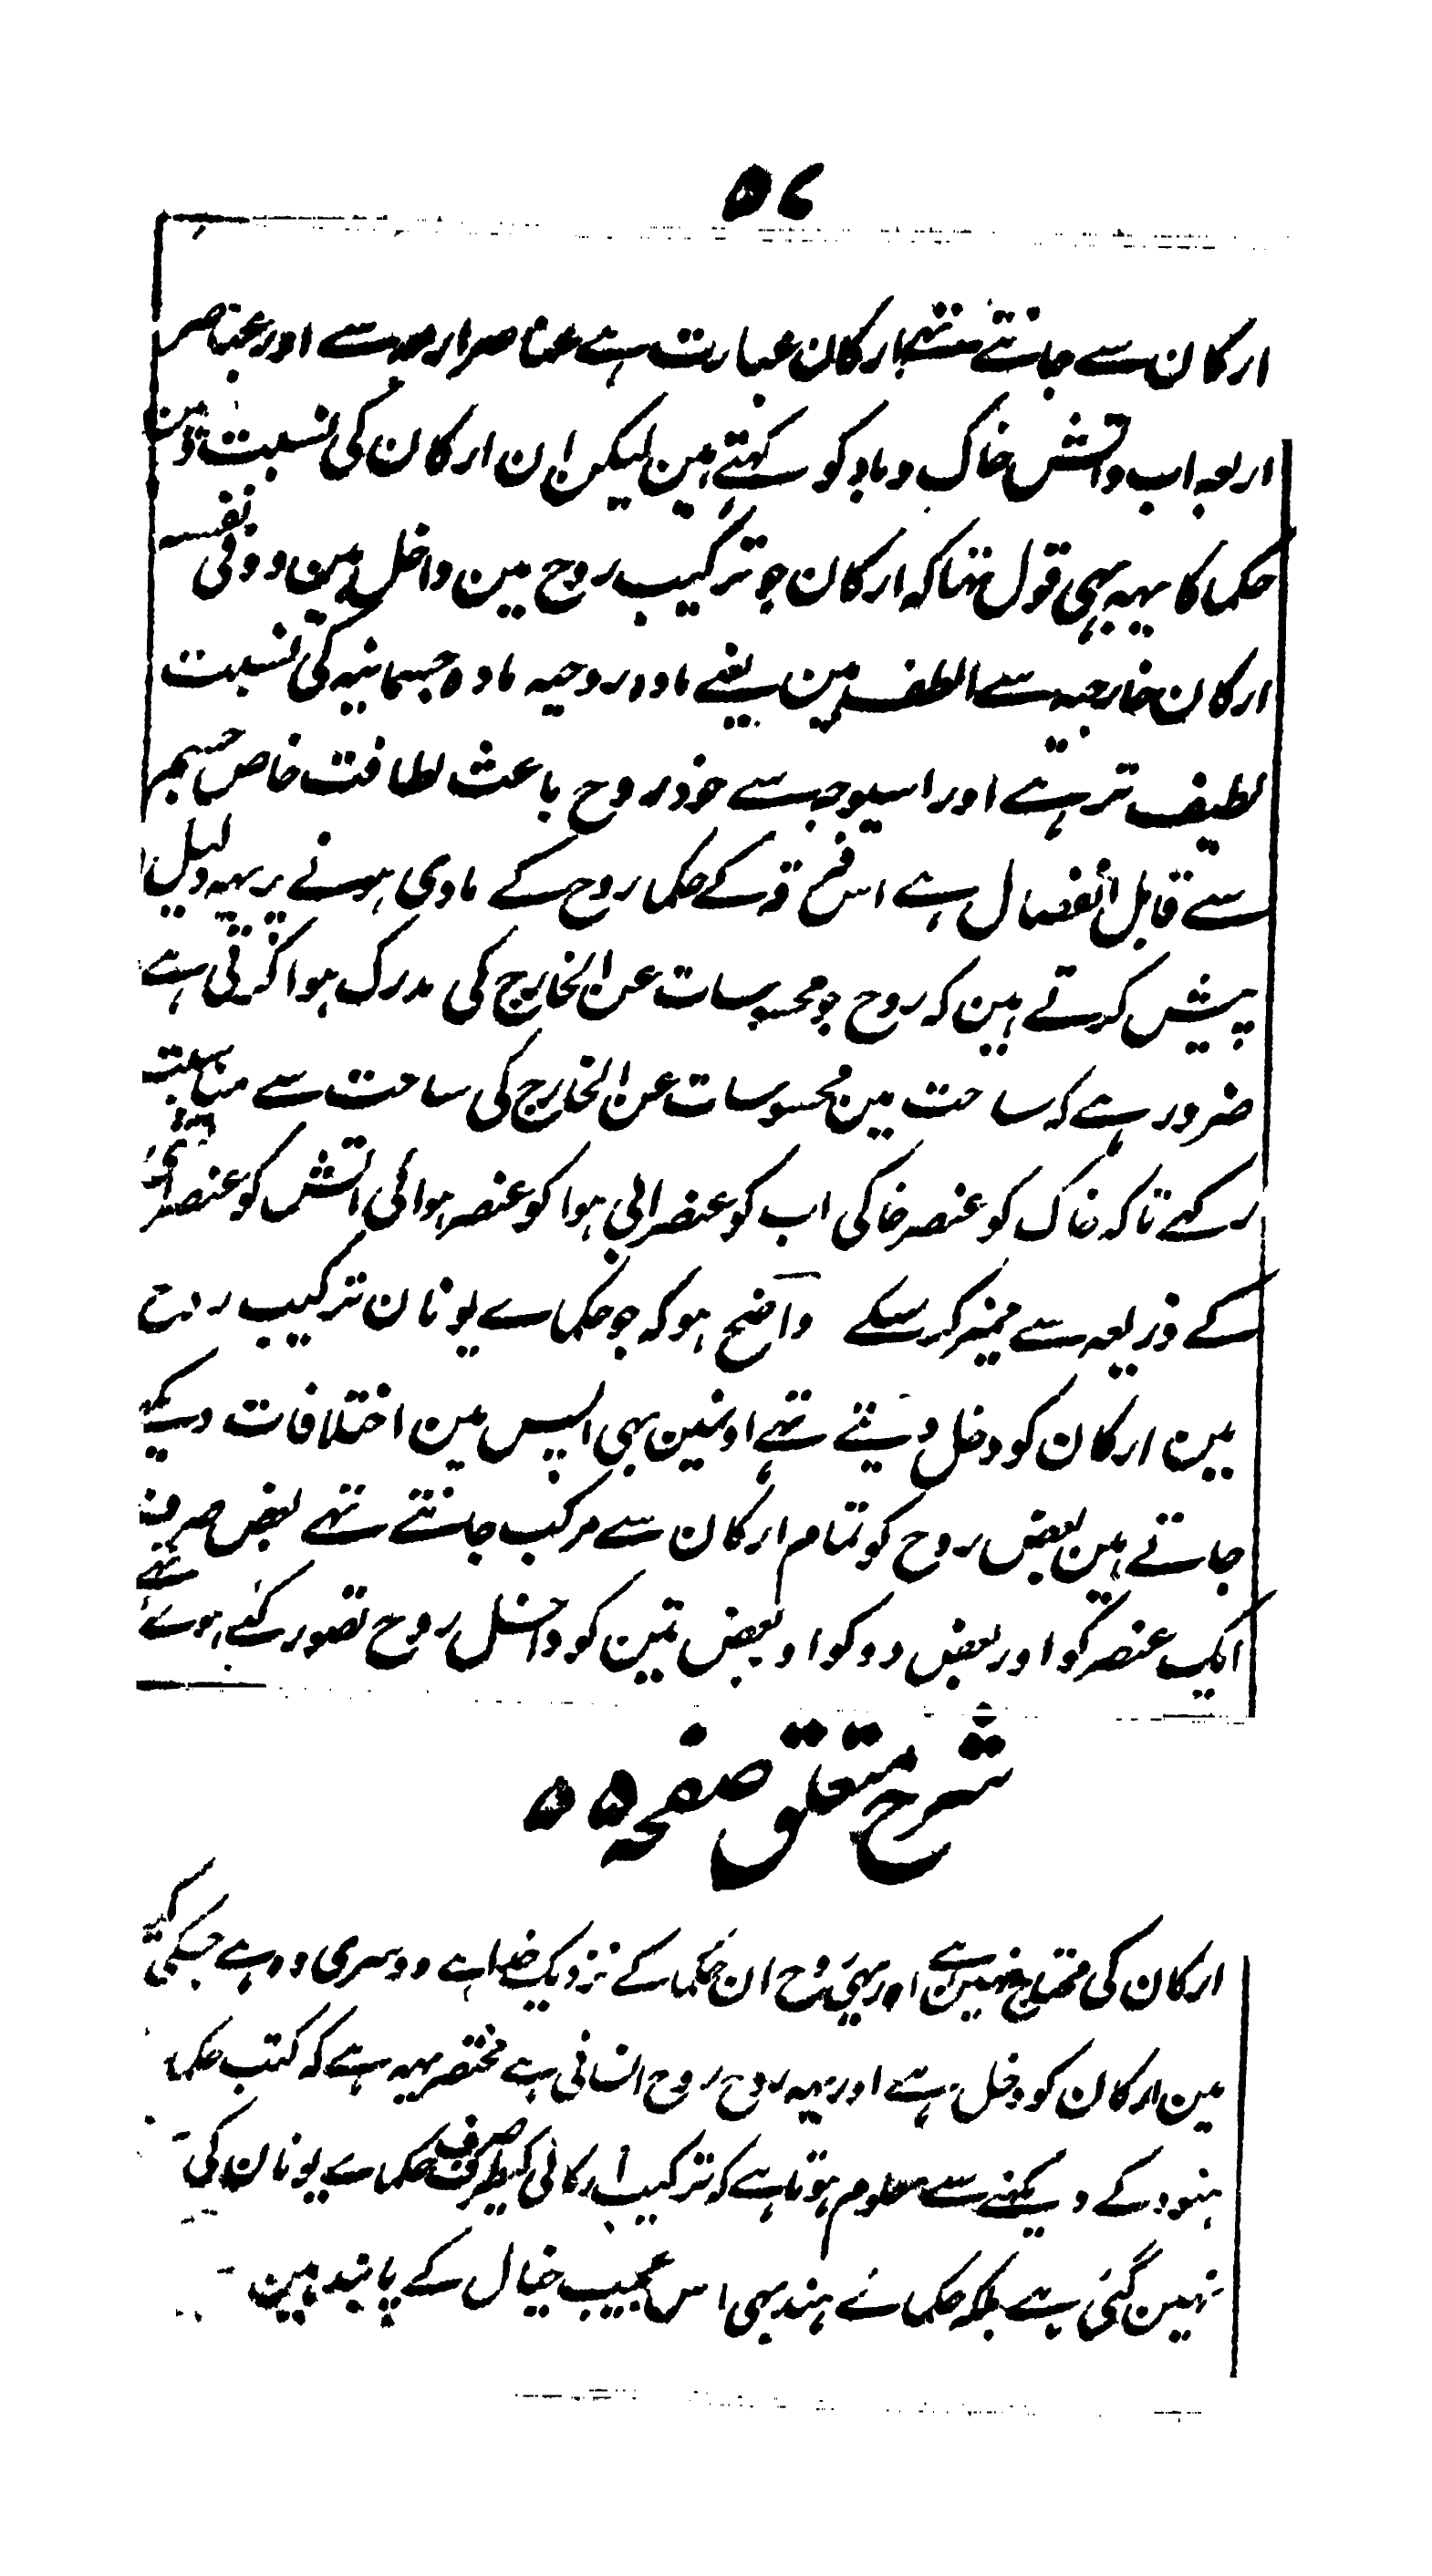 ۵۶
ارکان سے جانتے تہے ارکان عبارت ہے عناصر اربعہ سے اور عناصر
اربعہ اب واتش خاک وباد کو کہتے ہین لیکن ان ارکان کی نسبت
حکما کا یہہ بہی قول تہا کہ ارکان جو ترکیب روح مین داخل ہین وہ فی نفسہ
ارکان خارجیہ سے الطف ہین یعنے مادہ روحیہ مادہ جسمانیہ کی نسبت
لطیف تر ہے اور اسیوجہ سے خود روح باعث لطافت خاص جسم
سے قابل انفصال ہے اس فرقہ کے حکما روح کے مادی ہونے پر یہہ دلیل
پیش کرتے ہین کہ روح جو محسوسات عن الخارج کی مدرک ہوا کرتی ہے
ضرور ہے کہ ساحت مین محسوسات عن الخارج کی ساحت سے مناسبت
رکہے تاکہ خاک کو عنصر خاکی اب کو عنصر ابی ہوا کو عنصر ہوائی اتش کو عنصر اتشی
کے ذریعہ سے ممیز کر سکے واضح ہو کہ جو حکماے یونان ترکیب روح
مین ارکان کو دخل دیتے تہے اونمین بہی اپس مین اختلافات دیکہے
جاتے ہین بعض روح کو تمام ارکان سے مرکب جانتے تہے بعض صرف
ایک عنصر کو اور بعض دو کو اور بعض تین کو داخل روح تصور کئے ہوے تہے
شرح متعلق صفحہ ۵۵
ارکان کی محتاج نہین ہے اور یہی روح ان حکما کے نزدیک خدا ہے دوسری وہ ہے جسکی ترکیب
مین ارکان کو دخل ہے اور یہہ روح روح انسانی ہے مختصر یہہ ہے کہ کتب حکما
ہنود کے دیکہنے سے معلوم ہوتا ہے کہ ترکیب ارکانی کیطرف صرف حکماے یونان کی
نہین گئی ہے بلکہ حکمائے ہند بہی اس عجیب خیال کے پابند ہین